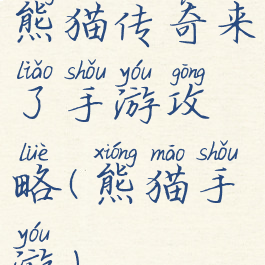 熊猫传奇来
liǎo shǒu yóu gōng
了手游攻
lüè xióng māo shǒu
略(熊猫手
yóu
游)